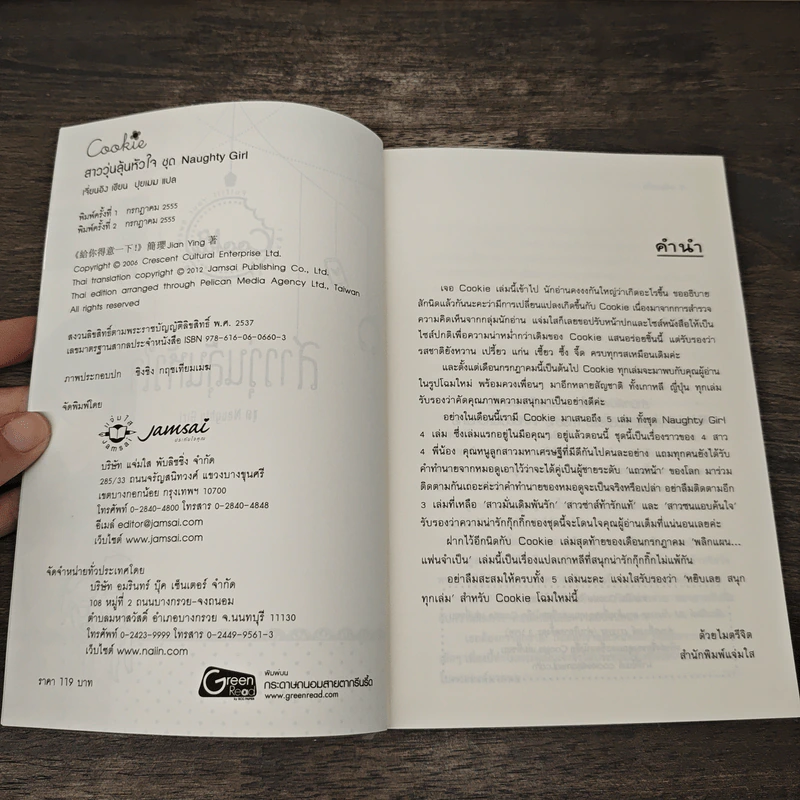 Cookie
สาววุ่นลุ้นหัวใจ ชุด Naughty Girl
เจี่ยนอิง เขียน ปุยเมฆ แปล
พิมพ์ครั้งที่ 1 กรกฎาคม 2555
พิมพ์ครั้งที่ 2 กรกฎาคม 2555
《給你得意一下!》 簡瓔 Jian Ying 著
Copyright © 2006 Crescent Cultural Enterprise Ltd.
Thai translation copyright © 2012 Jamsai Publishing Co., Ltd.
Thai edition arranged through Pelican Media Agency Ltd., Taiwan
All rights reserved
สงวนลิขสิทธิ์ตามพระราชบัญญัติลิขสิทธิ์ พ.ศ. 2537
เลขมาตรฐานสากลประจำหนังสือ ISBN 978-616-06-0660-3
ภาพประกอบปก ชิงชิง กฤชเทียมเมฆ
จัดพิมพ์โดย
แจ่มใส Jamsai
Jamsai
บริษัท แจ่มใส พับลิชชิ่ง จำกัด
285/33 ถนนจรัญสนิทวงศ์ แขวงบางขุนศรี
เขตบางกอกน้อย กรุงเทพฯ 10700
โทรศัพท์ 0-2840-4800 โทรสาร 0-2840-4848
อีเมล์ editor@jamsai.com
เว็บไซต์ www.jamsai.com
จัดจำหน่ายทั่วประเทศโดย
บริษัท อมรินทร์ บุ๊ค เซ็นเตอร์ จำกัด
108 หมู่ที่ 2 ถนนบางกรวย-จงถนอม
ตำบลมหาสวัสดิ์ อำเภอบางกรวย จ.นนทบุรี 11130
โทรศัพท์ 0-2423-9999 โทรสาร 0-2449-9561-3
เว็บไซต์ www.naiin.com
ราคา 119 บาท
Green Read
พิมพ์บน
กระดาษถนอมสายตากรีนรี้ด
www.greenread.com
คำนำ
เจอ Cookie เล่มนี้เข้าไป นักอ่านคงงงกันใหญ่ว่าเกิดอะไรขึ้น ขออธิบาย
สักนิดแล้วกันนะคะว่ามีการเปลี่ยนแปลงเกิดขึ้นกับ Cookie เนื่องมาจากการสำรวจ
ความคิดเห็นจากกลุ่มนักอ่าน แจ่มใสก็เลยขอปรับหน้าปกและไซส์หนังสือให้เป็น
ไซส์ปกติเพื่อความน่าหม่ำกว่าเดิมของ Cookie แสนอร่อยชิ้นนี้ แต่รับรองว่า
รสชาติยังหวาน เปรี้ยว แก่น เซี้ยว ซึ้ง จี๊ด ครบทุกรสเหมือนเดิมค่ะ
และตั้งแต่เดือนกรกฎาคมนี้เป็นต้นไป Cookie ทุกเล่มจะมาพบกับคุณผู้อ่าน
ในรูปโฉมใหม่ พร้อมควงเพื่อนๆ มาอีกหลายสัญชาติ ทั้งเกาหลี ญี่ปุ่น ทุกเล่ม
รับรองว่าคัดคุณภาพความสนุกมาเป็นอย่างดีค่ะ
อย่างในเดือนนี้เรามี Cookie มาเสนอถึง 5 เล่ม ทั้งชุด Naughty Girl
4 เล่ม ซึ่งเล่มแรกอยู่ในมือคุณๆ อยู่แล้วตอนนี้ ชุดนี้เป็นเรื่องราวของ 4 สาว
4 พี่น้อง คุณหนูลูกสาวมหาเศรษฐีที่มีดีกันไปคนละอย่าง แถมทุกคนยังได้รับ
คำทำนายจากหมอดูเอาไว้ว่าจะได้คู่เป็นผู้ชายระดับ 'แถวหน้า' ของโลก มาร่วม
ติดตามกันเถอะค่ะว่าคำทำนายของหมอดูจะเป็นจริงหรือเปล่า อย่าลืมติดตามอีก
3 เล่มที่เหลือ 'สาวมั่นเดิมพันรัก' 'สาวซ่าส์ท้ารักแท้' และ 'สาวซนแอบค้นใจ'
รับรองว่าความน่ารักกุ๊กกิ๊กของชุดนี้จะโดนใจคุณผู้อ่านเต็มที่แน่นอนเลยค่ะ
ฝากไว้อีกนิดกับ Cookie เล่มสุดท้ายของเดือนกรกฎาคม 'พลิกแผน...
แฟนจำเป็น' เล่มนี้เป็นเรื่องแปลเกาหลีที่สนุกน่ารักกุ๊กกิ๊กไม่แพ้กัน
อย่าลืมสะสมให้ครบทั้ง 5 เล่มนะคะ แจ่มใสรับรองว่า 'หยิบเลย สนุก
ทุกเล่ม' สำหรับ Cookie โฉมใหม่นี้
ด้วยไมตรีจิต
สำนักพิมพ์แจ่มใส